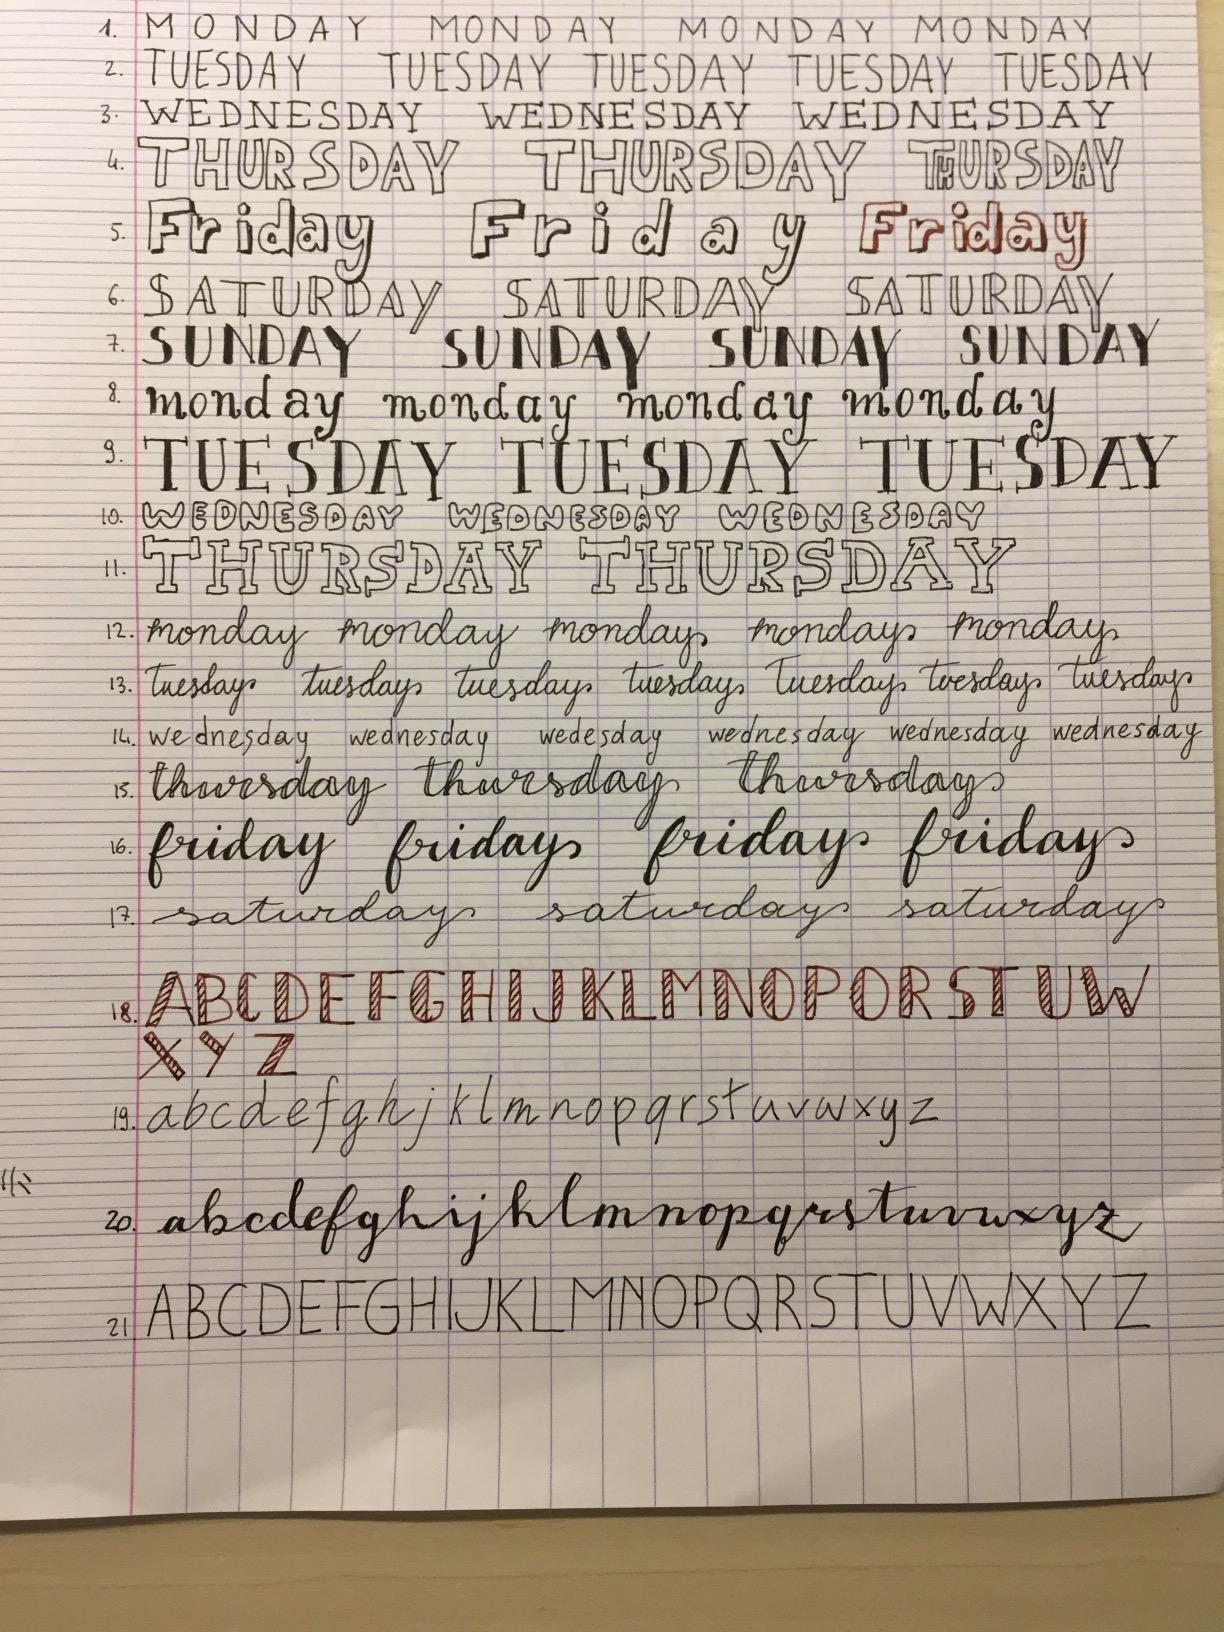 1. MONDAY MONDAY MONDAY MONDAY
2. TUESDAY TUESDAY TUESDAY TUESDAY TUESDAY
3. WEDNESDAY WEDNESDAY WEDNESDAY
4. THURSDAY THURSDAY THURSDAY
5. Friday Friday Friday
6. SATURDAY SATURDAY SATURDAY
7. SUNDAY SUNDAY SUNDAY SUNDAY
8. monday monday monday monday
9. TUESDAY TUESDAY TUESDAY
10. WEDNESDAY WEDNESDAY WEDNESDAY
11. THURSDAY THURSDAY
12. monday monday monday monday monday
13. tuesday tuesday tuesday tuesday tuesday tuesday tuesday
14. wednesday wednesday wedesday wednesday wednesday wednesday
15. thursday thursday thursday
16. friday friday friday friday
17. saturday saturday saturday
18. ABCDEFGHIJKLMNOPORSTUW
XYZ
19. abcdefghjklmnopqrstuvwxyz
20. abcdefghijklmnopqrstuvwxyz
21 ABCDEFGHIJKLMNOPQRSTUVWXYZ